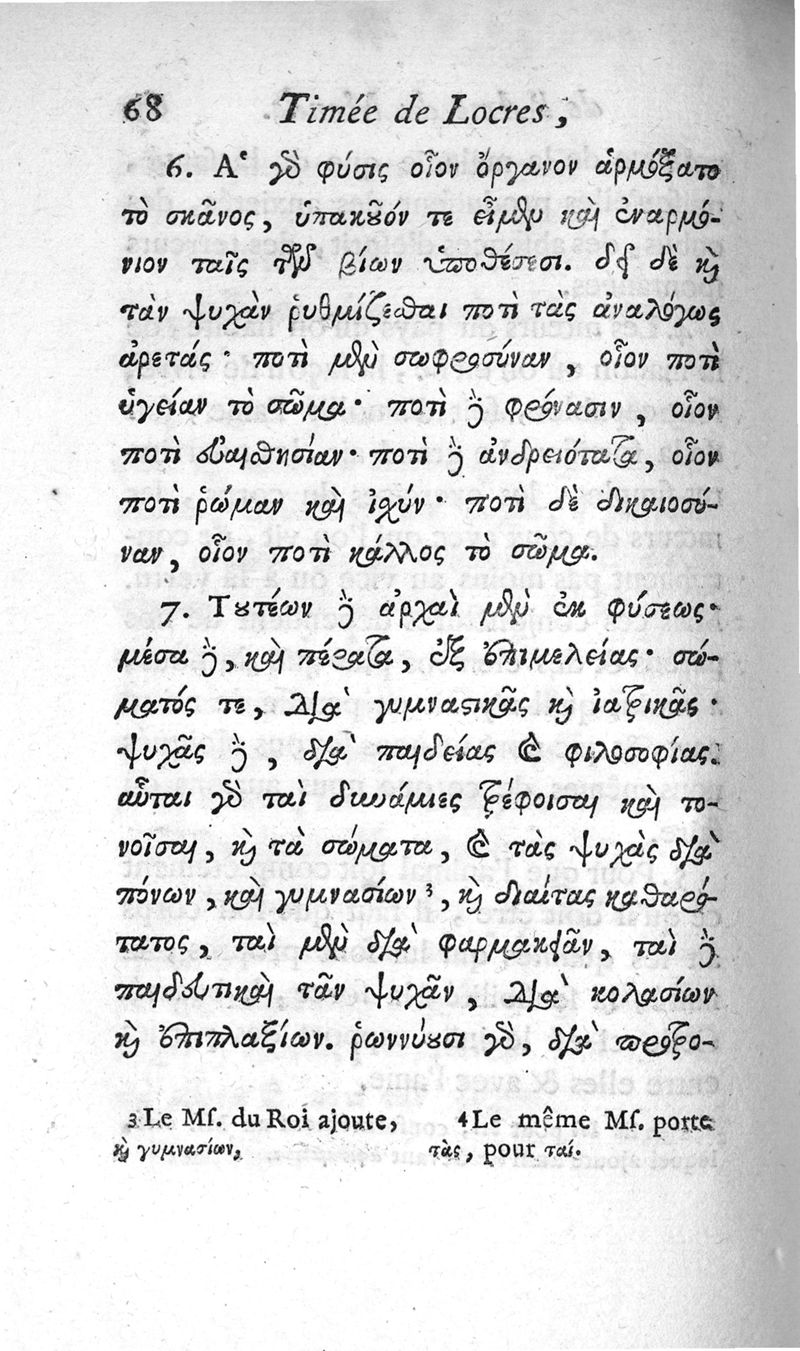 68 Timée de Locres,
6. Ἁ γὰρ φύσις οἷον ὄργανον ἁρμόξατο
τὸ σκᾶνος, ὑπακȣόν τε εἶμεν καὶ ἐναρμό-
νιον ταῖς τῶν βίων ὑποθέσεσι. δεῖ δὲ κὶ
τὰν ψυχὰν ῥυθμίζεσθαι ποτὶ τὰς ἀναλόγως
ἀρετάς· ποτὶ μὲν σωφροσύναν, οἷον ποτὶ
ὑγείαν τὸ σῶμα· ποτὶ δὲ φρόνασιν, οἷον
ποτὶ εὐαισθησίαν· ποτὶ δὲ ἀνδρειότατα, οἷον
ποτὶ ῥώμαν καὶ ἰχύν· ποτὶ δὲ δικαιοσύ-
ναν, οἷον ποτὶ κάλλος τὸ σῶμα.
7. Τȣτέων δὲ ἀρχαὶ μὲν ἐκ φύσεως·
μέσα δὲ, καὶ πέρατα, ἐξ ἐπιμελείας· σώ-
ματός τε, διὰ γυμναστικᾶς κὶ ἰατρικᾶς·
ψυχᾶς δὲ, διὰ παιδείας καὶ φιλοσοφίας.
αὗται γὰρ ταὶ δυνάμιες τρέφοισαι καὶ το-
νοῖσαι, κὶ τὰ σώματα, καὶ τὰς ψυχὰς διὰ
πόνων, καὶ γυμνασίων 3, κὶ διαίτας καθαρό-
τατος, ταὶ μὲν διὰ φαρμακειᾶν, ταὶ δὲ
παιδευτικαὶ τᾶν ψυχᾶν, διὰ κολασίων
κὶ ἐπιπλαξίων. ῥωννύȣσι γὰρ, διὰ προτρο-
3 Le Mſ. du Roi ajoute,
κὶ γυμνασίων,
4 Le même Mſ. porte
τὰς, pour ταί.